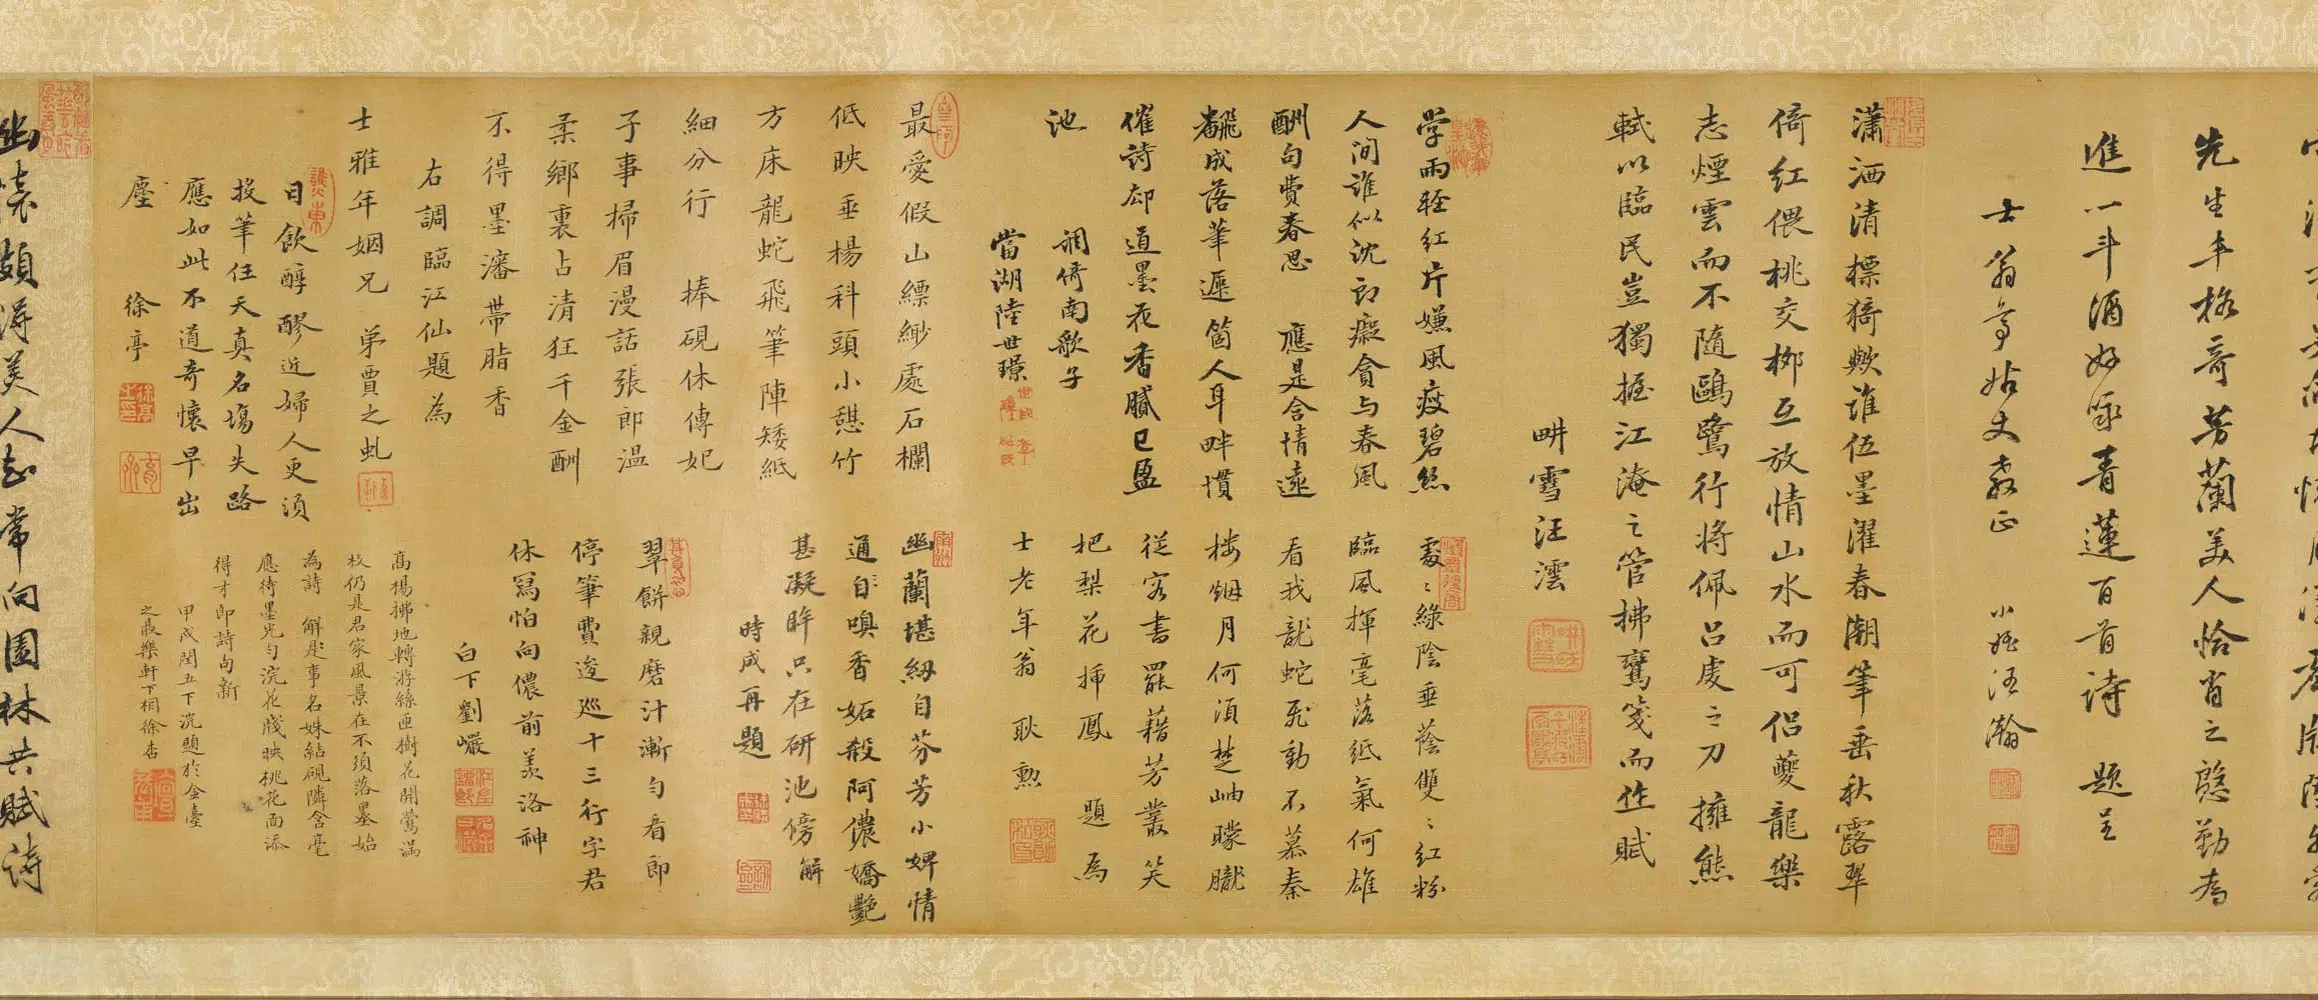 先生丰格哥芳蘭美人恰肖之慇勤為
進一斗酒好冩青蓮百首诗 题呈
士翁年姑丈教正 小姪汪瀚
瀟洒清標猗歟誰伍墨濯春潮筆垂秋露翠
倚红偎桃交柳互放情山水而可侣夔龍樂
志煙雲而不隨鷗鷺行将佩吕虔之刀擁熊
軾以臨民豈獨握江淹之管拂鸞箋而作賦
畊雪汪澐
学雨輕红片嫌風疫碧丝
人间谁似沈郎癡貪与春風
酬句費春思 應是含情遠
飜成落筆遲箇人耳畔慣
催诗却道墨花香膩已盈
池
調倚南歌子
當湖陸世璟
處〻綠陰垂蔭雙〻红粉
臨風揮毫落纸氣何雄
看我龍蛇飛動不慕秦
楼烟月何須楚岫矇朧
従容書罷藉芳叢笑
把梨花插鳳 題為
士老年翁 耿勲
最愛假山縹緲處石欄
低映垂楊科頭小憇竹
方床龍蛇飛筆陣矮紙
細分行 捧硯休傳妃
子事掃眉漫話張郎温
柔鄉裏占清狂千金酬
不得墨瀋帯脂香
右調臨江仙題為
士雅年姻兄 弟賈之虬
幽蘭堪紉自芬芳小婢情
通自嗅香妬殺阿儂嬌艷
甚凝眸只在研池傍解
時成再題
翠餅親磨汁漸勻看郎
停筆費逡巡十三行字君
休寫怕向儂前羡洛神
白下劉巗
日飲醇醪近婦人更須
投筆任天真名塲失路
應如此不道奇懷早出
塵 徐亭
高楊拂地轉游絲匝樹花開鶯满
枝仍是君家風景在不須落墨始
為詩 解是事名姝結硯隣含毫
應待墨光勻浣花牋映桃花面添
得才郎詩句新
甲戌閏五下浣題於金臺
之最樂軒下相徐杏
幽懐頗得美人知常向園林共賦诗